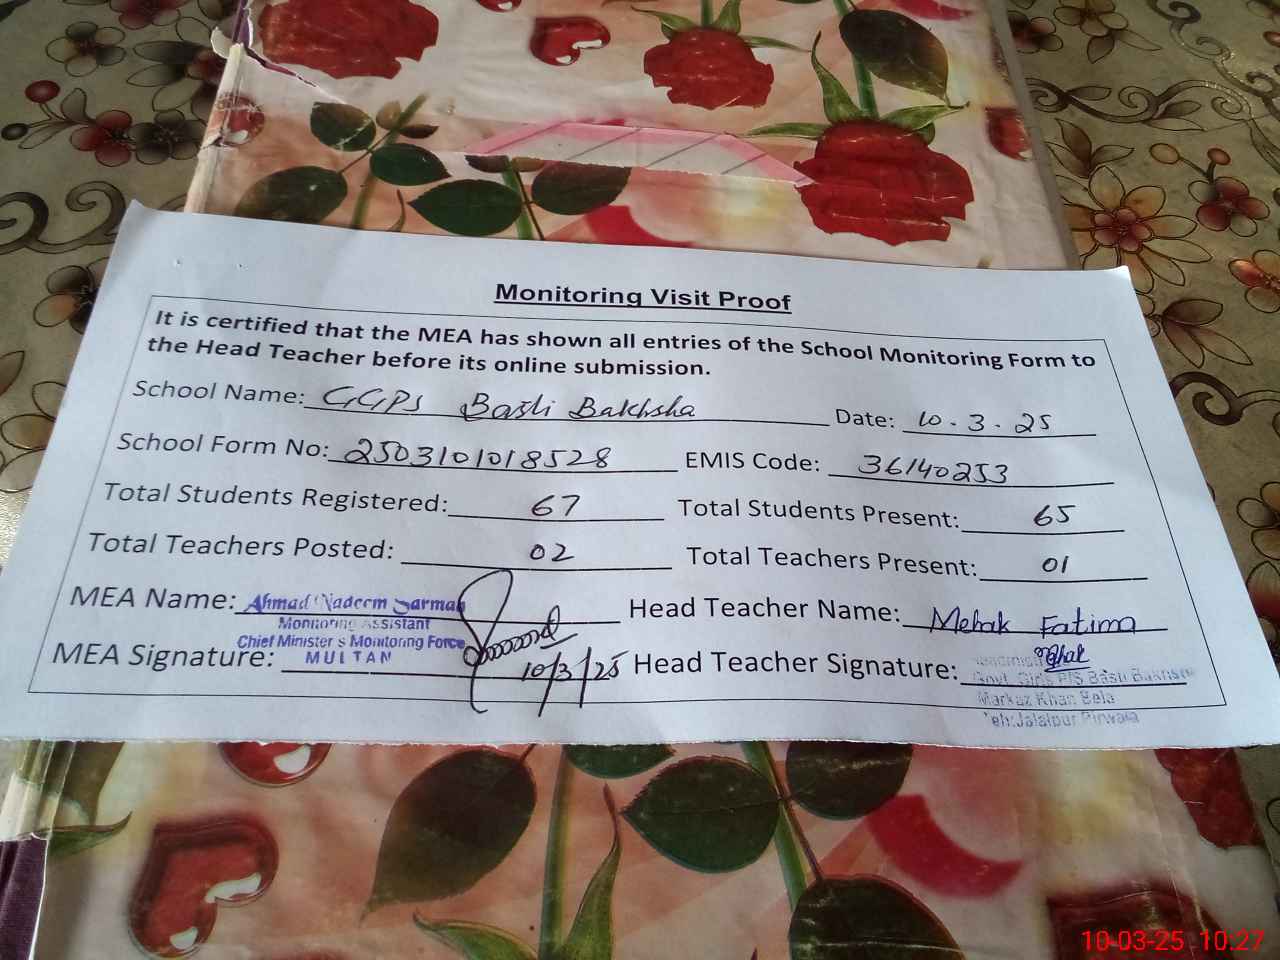 Monitoring Visit Proof
It is certified that the MEA has shown all entries of the School Monitoring Form to
the Head Teacher before its online submission.
School Name: GGPS Basti Bakhsha Date: 10.3.25
School Form No: 2503101018528 EMIS Code: 36140253
Total Students Registered: 67 Total Students Present: 65
Total Teachers Posted: 02 Total Teachers Present: 01
MEA Name: Ahmad Nadeem Head Teacher Name: Mehak Fatima
Monitoring Assistant
Chief Minister s Monitoring Force
MULTAN
MEA Signature: 10/3/25 Head Teacher Signature: Mehak
Govt. Girls P/S Basti
Markaz Khan Bela
Teh:Jalalpur Pirwala
10-03-25 10:27